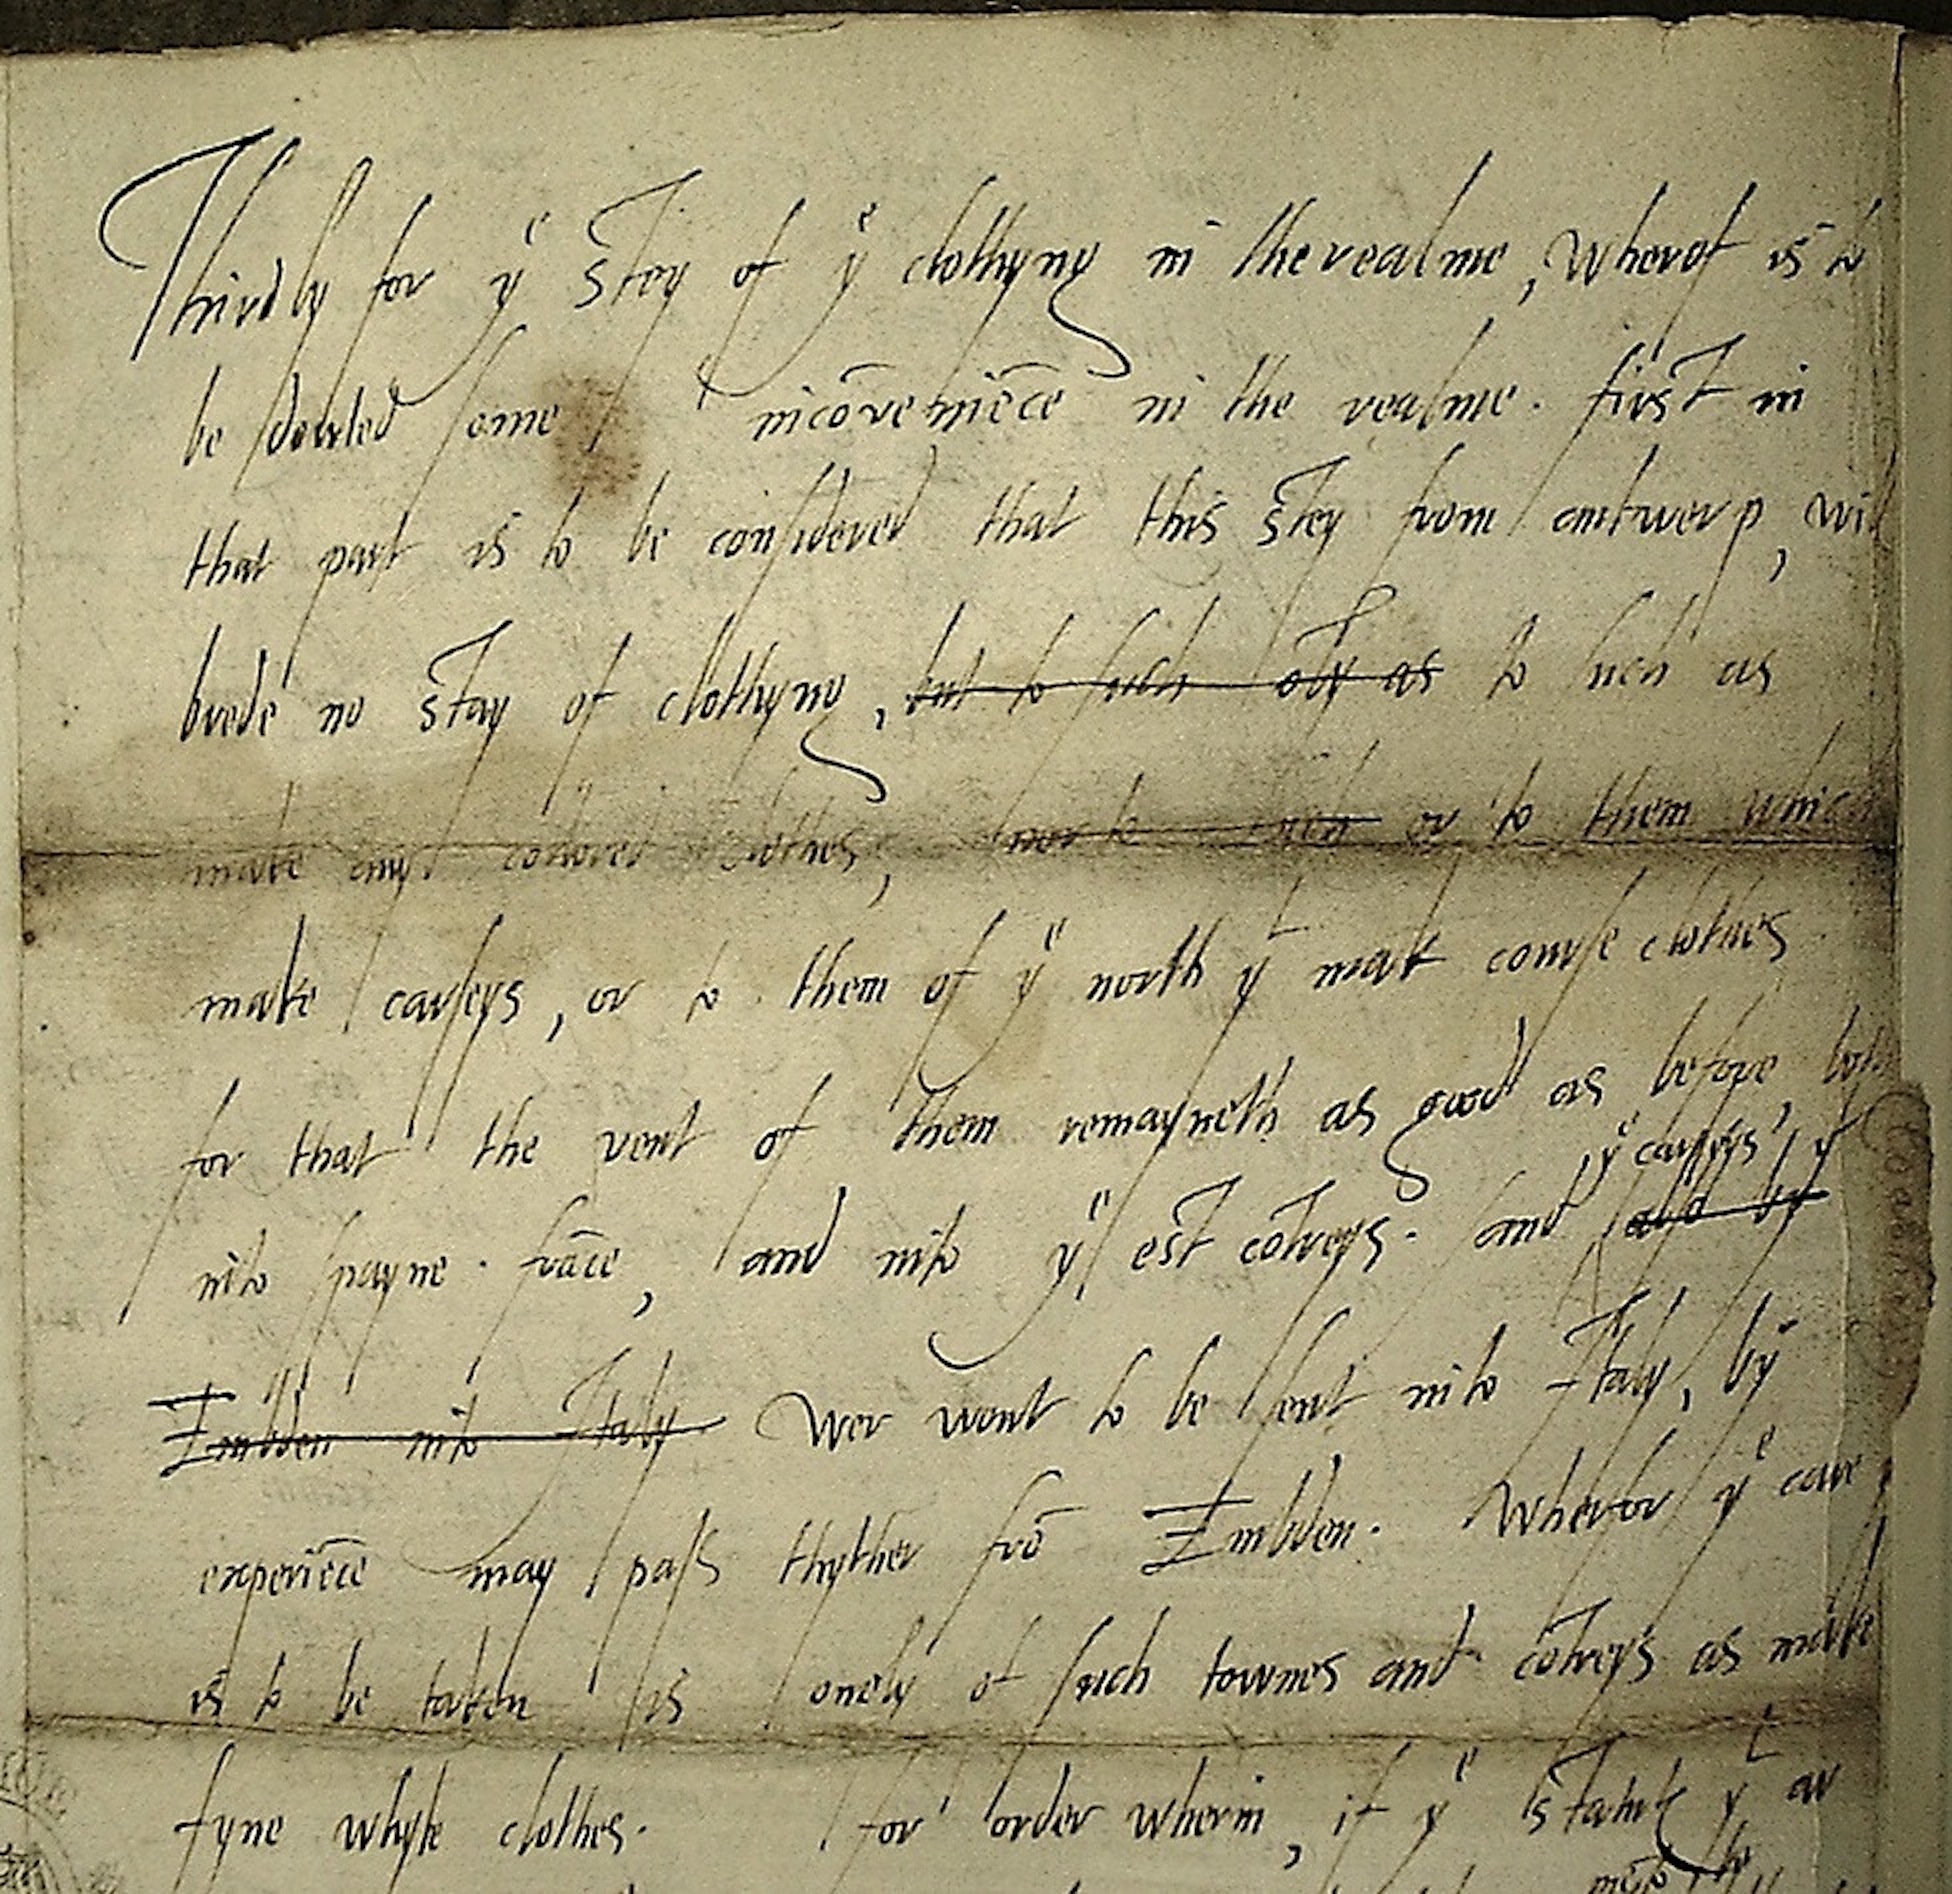 Thirdly for yᵉ stey of yᵉ clothyng in the realme, wherof is to
be douted some incōveniēce in the realme. first in
that part is to be considered that this stey from antwerp, will
brede no stay of clothyng, but to such oly as to such as
make any colored clothes, nor to such or to them which
make carseys, or to them of yᵉ north yᵗ mak course clothes
for that the vent of them remayneth as good as before, both
into spayne. frāce, and into yᵉ est cōtreys. and also by
yᵉ carseys, yᵗ
Embden into Italy wer wont to be sent into Italy, by
experiēce may pass thyther frō Embden. Wherfor yᵉ care
is to be taken is onely of such townes and cōtreys as make
fyne whyte clothes. for order wherin, if yᵉ statute yᵗ ar